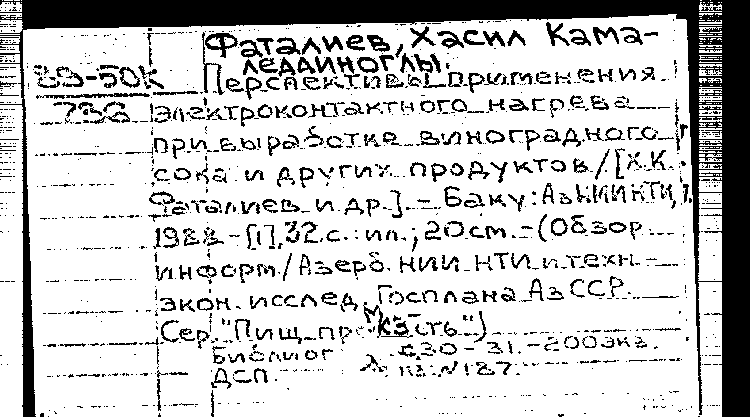 Фаталиев, Хасил Кама-
леддиноглы.
89-50К Перспективы применения
736 электроконтактного нагрева
при выработке виноградного
сока и других продуктов / [Х.К.
Фаталиев и др.]. - Баку: АзНИИНТИ,
1988 - [1], 32 с.: ил.; 20 см. - (Обзор.
информ. / Азерб. НИИ НТИ и техн.-
экон. исслед. Госплана АзССР.
Сер. "Пищ. пром-сть")
Библиог с. 30-31. - 200 экз.
ДСП. №187.